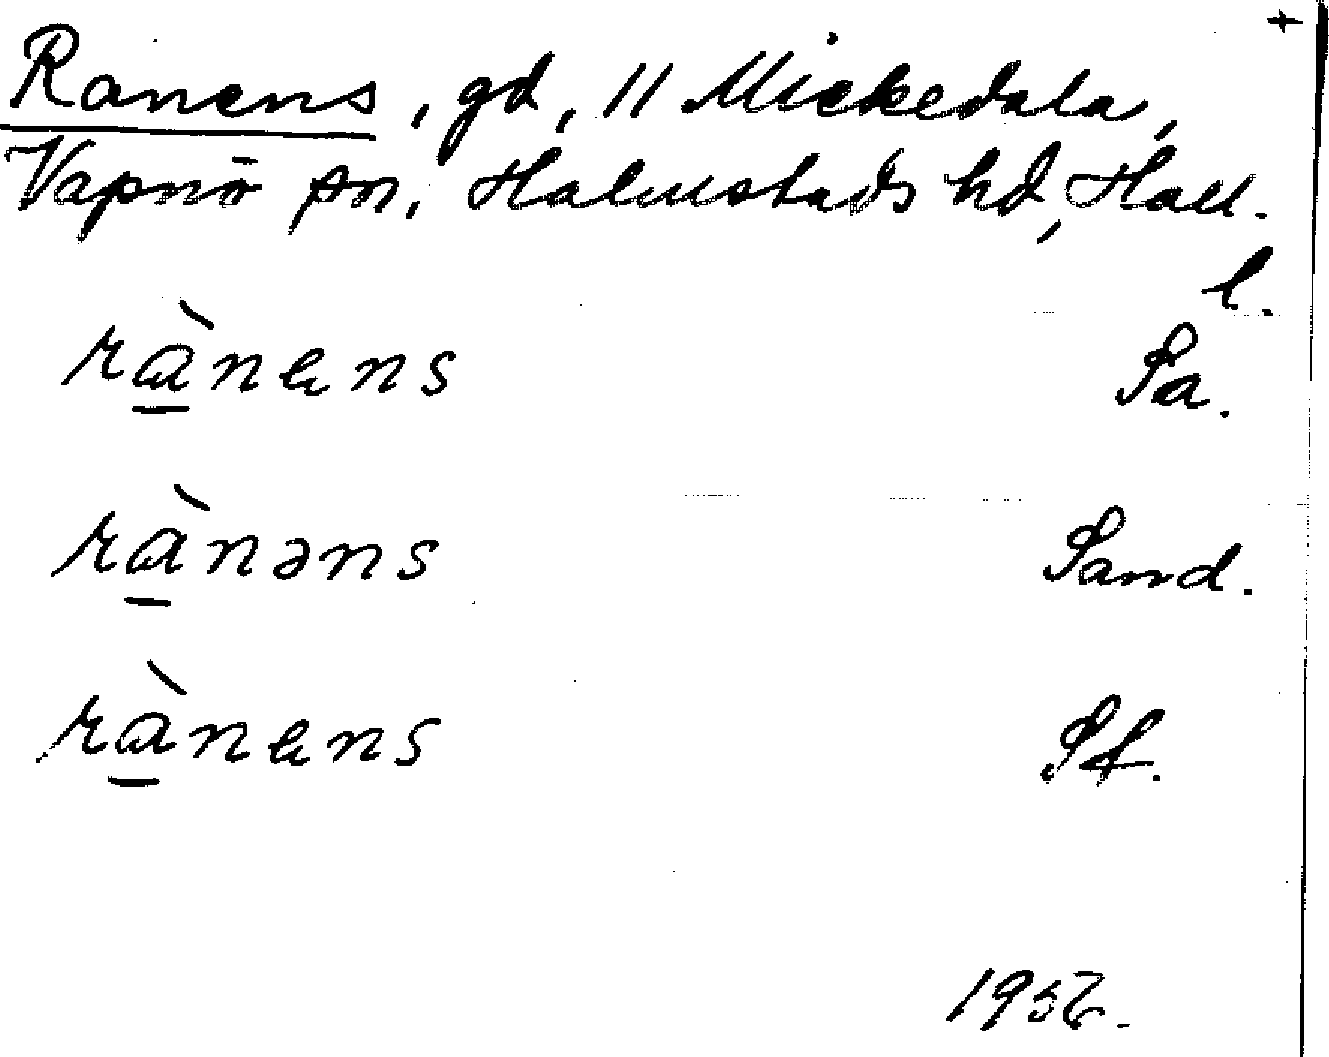 +
Ranens, gd, 11 Mickedala,
Vapnö sn, Halmstads hd, Hall.
l.
rànens Sa.
rànəns Sand.
rànens Sf.